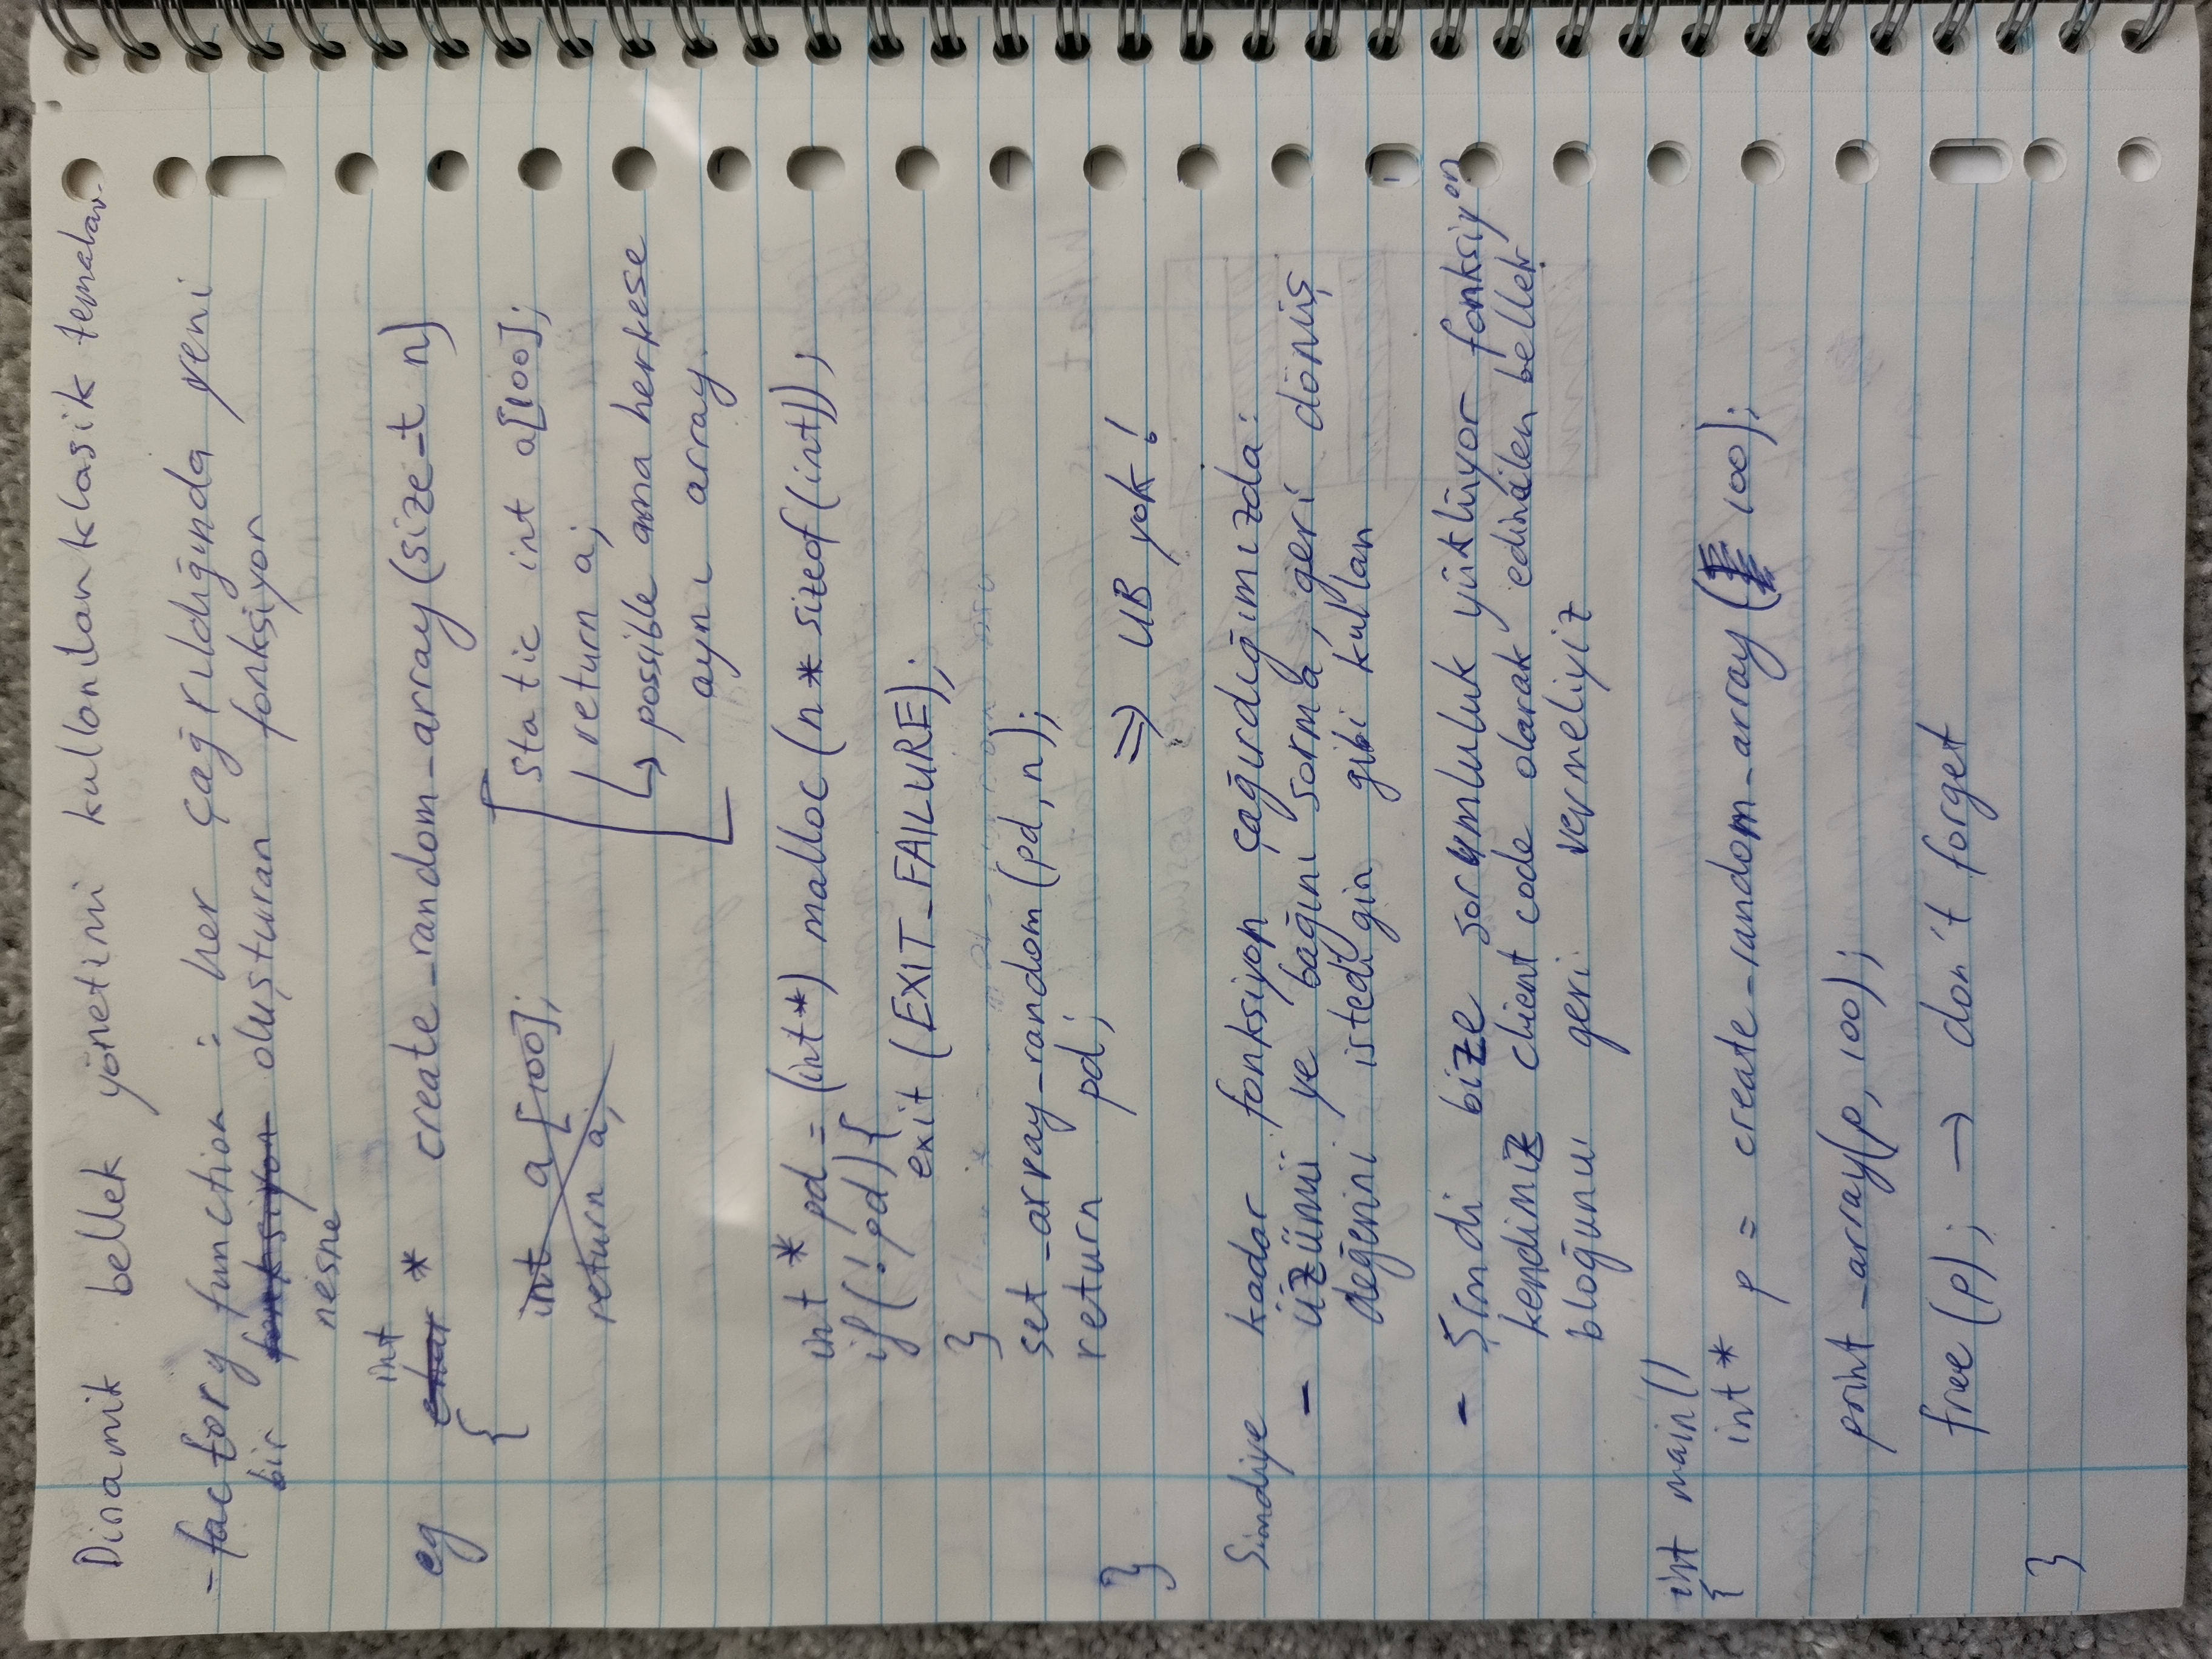 Dinamik bellek yönetimi kullanılan klasik temalar
- factory function : her çağrıldığında yeni
bir fonksiyon oluşturan fonksiyon
nesne
int
eg char * create_random_array(size_t n)
{
int a[100];
return a;
static int a[100];
return a;
↳ possible ama herkese
aynı array.
int * pd = (int*) malloc (n * sizeof(int));
if(!pd){
exit (EXIT_FAILURE);
}
set_array_random(pd, n);
return pd;
}
⇒ UB yok!
Simdiye kadar fonksiyon çağırdığımızda:
- üzümü ye bağını sorma, geri dönüş
değerini istedigin gibi kullan
- Şimdi bize sorumluluk yüklüyor fonksiyon
kendimiz client code olarak edinilen bellek
bloğunu geri vermeliyiz
int main()
{
int* p = create_random_array( 100);
print_array(p, 100);
free(p); → don't forget
}